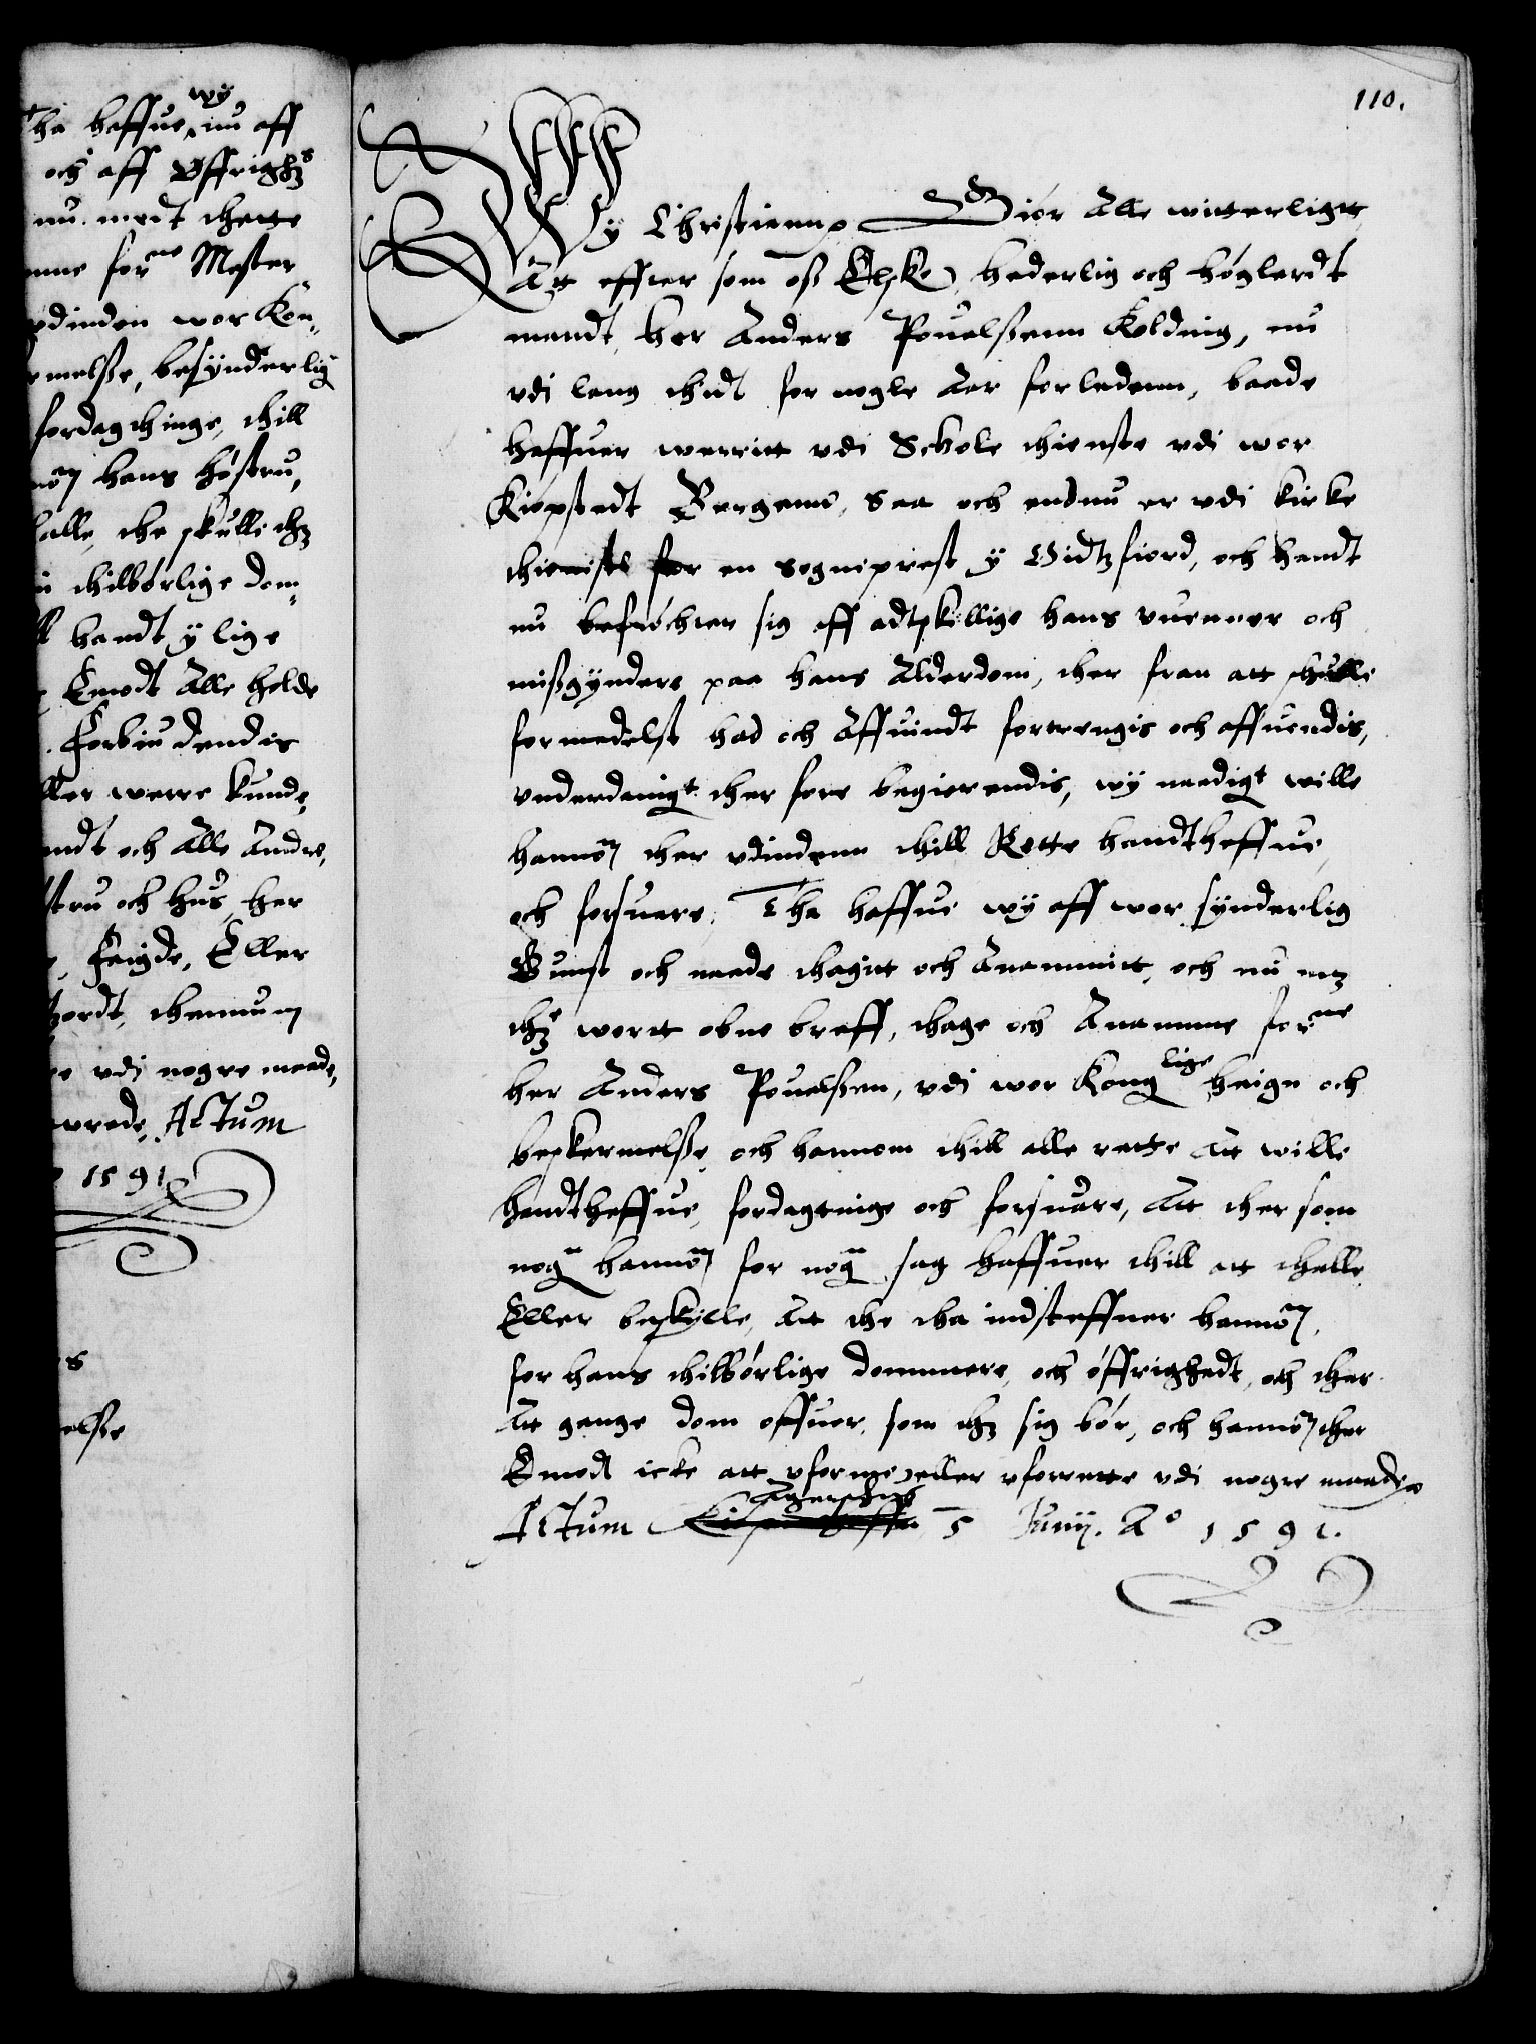 wy
Tha haffue nu aff
och aff Offrighz
nu medt thette
forne Mester
vdinden wor Kon¬
melsße, besynderlig
fordagthinge, thill
hans høstru,
alle, the skulle thz
thilbørlige dom¬
handt y lige
Emodt Alle holde
Forbiudendis
werre kunde,
och Alle Andre,
och hus, her
Feigde, Eller
thennum
vdi nogre maade,
wrede, Actum
1591
110.
Wy Christiann Giør Alle witterligtt,
Att effter som oß Elske, hederlig och høglerdt
mandt, her Anders Pouelsßenn Kolding, nu
vdi lang thidt for nogle Aar forledenn, baade
haffuer werritt vdi Schole thieniste vdi wor
Kiøpstedt Bergenn, Saa och endnu er vdi kirke
thieniste for en Sogneprest y Vidtzfiord, och handt
nu befrøcther sig aff adtskillige hans vuenner och
mißgyndere paa hans Alderdom, ther fran att skulle
formedelst had och Affuindt fortrengis och affuendis,
vnderdanigt ther fore begierendis, wy naadigt wille
hannom ther vdindenn thill Rette handtheffue,
och forsuare, Tha haffue wy aff wor synderlig
Gunst och naade thagitt och Anammitt, och nu mz
thz wortt obne breff, thage och Anamme forne
her Anders Pouelsßen, vdi wor Konglige heign och
beskermelsße, och hannom thill alle rette Att wille
handtheffue, fordagtinge och forsuare, Att ther som
nogn hannom for nogn sag haffuer thill att thalle
Eller beskylle, Att the tha indsteffner hannom,
for hans thilbørlige dommere, och øffrighedt, och ther
Att gange dom offuer, som thz sig bør, och hannom ther
Emodt icke att vforme eller vforrette vdi nogre maade
Agershus
Actum 5 Junij. Ao 1591.